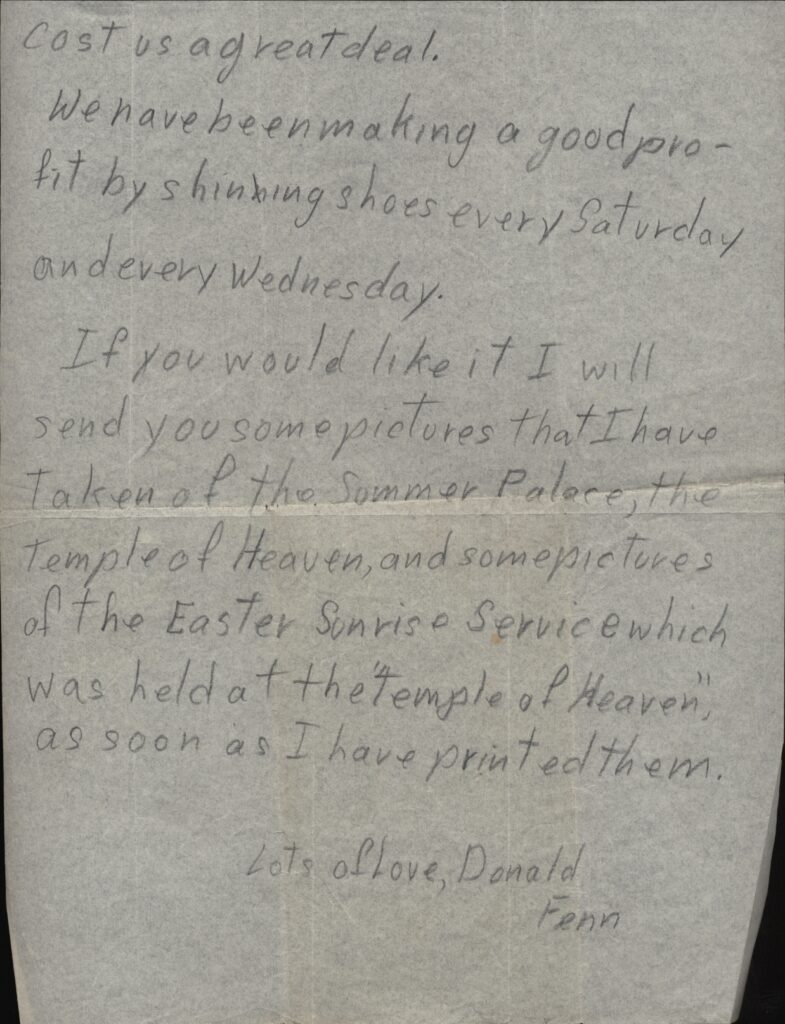 Cost us a great deal.
We have been making a good pro-
fit by shinning shoes every Saturday
and every Wednesday.
If you would like it I will
send you some pictures that I have
taken of the Summer Palace, the
temple of Heaven, and some pictures
of the Easter Sunrise Service which
was held at the "temple of Heaven",
as soon as I have printed them.
Lots of love, Donald
Fenn